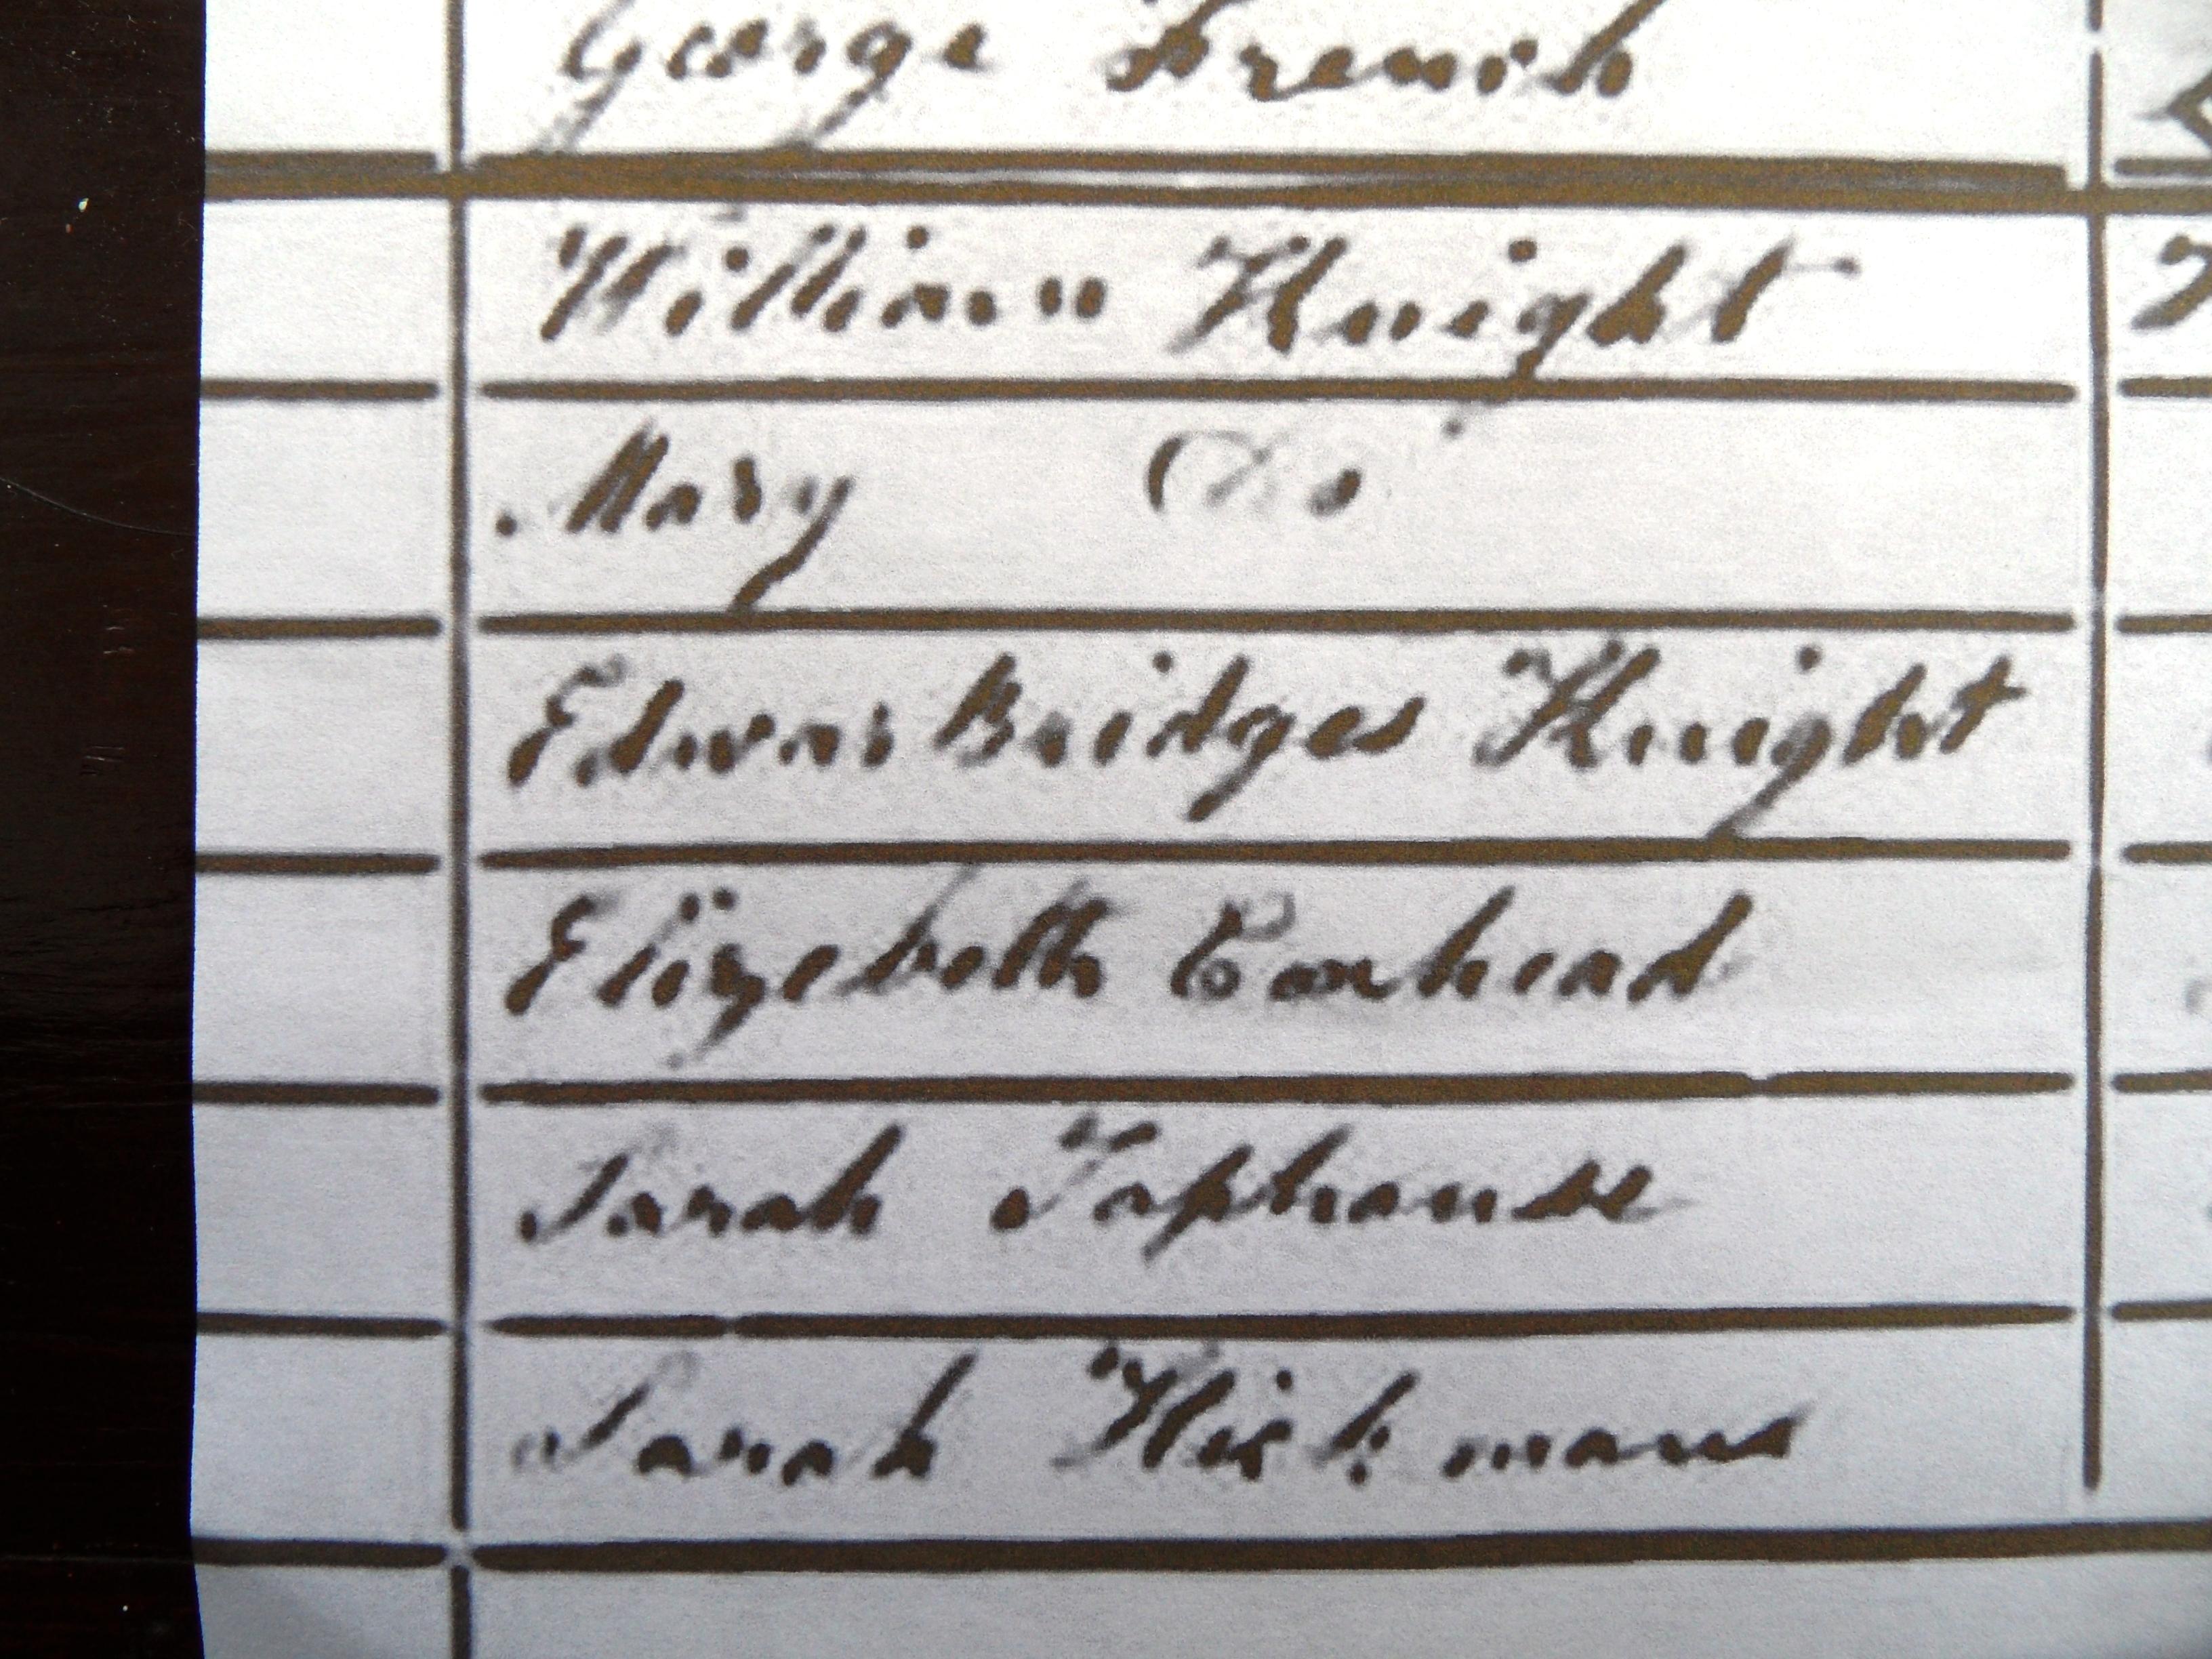 George French
William Knight
Mary Do
Edwar Bridges Knight
Elizebeth Coxhead
Sarah Taphouse
Sarah Hickmans